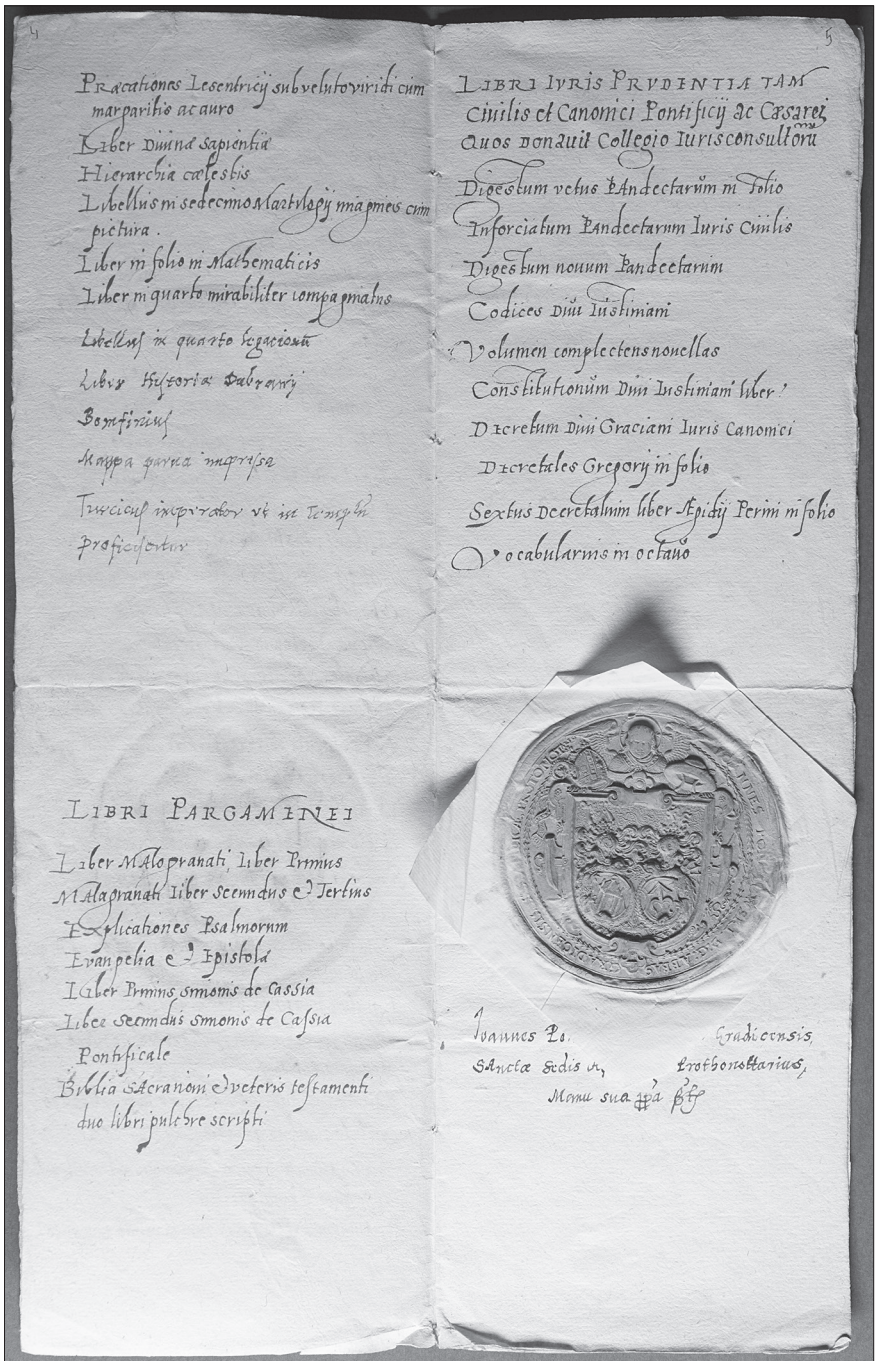 4
Præcationes Lesentricij sub veluto viridi cum
margaritis ac auro
Liber Diuinæ Sapientiæ
Hierarchia cœlestis
Libellus in sedecimo Martilogij imagineis cum
pictura.
Liber in folio in Mathematicis
Liber in quarto mirabiliter compaginatus
Libellus in quarto legacionū
Liber Historiæ Dubrauij
Bomfinius
Mappa parua impressa
Turcicus imperator ut in templū
proficiscitur
LIBRI PARGAMENEI
Liber Malogranati, Liber Primus
Malagranati liber secundus et Tertius
Explicationes Psalmorum
Euangelia et Epistolæ
Liber Primus simonis de Cassia
Liber secundus simonis de Cassia
Pontificale
Biblia sacra noui et veteris testamenti
duo libri pulchre scripti
5
LIBRI IVRIS PRVDENTIÆ TAM
Ciuilis et Canonici Pontificij ac Cæsarei
Quos Donauit Collegio Iurisconsultorū
Digestum vetus Pandectarūm in Folio
Inforciatum Pandectarum Iuris Ciuilis
Digestum nouum Pandectarum
Codices Diui Iustiniani
Volumen complectens nouellas
Constitutionūm Diui Iustiniani liber
Decretum Diui Graciani Iuris Canonici
Decretales Gregorij in folio
Sextus Decretalium liber Ægidij Perini in folio
Vocabularius in octauo
Ioannes Po. Gradicensis,
Sanctæ Sedis A, Prothonottarius,
Manu sua